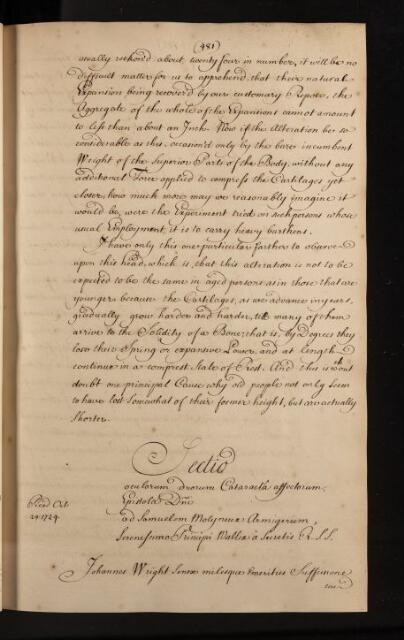 (481)
usually reckon'd about twenty four in number, it will be no
difficult matter for us to apprehend that their natural
Expansion being recover'd by our customary Repose, the
Aggregate of the whole of the Expansions cannot amount
to less than about an Inch. Now if the Alteration be so
considerable as this, occasion'd only by the bare incumbent
Weight of the Superior Parts of the Body, without any
additional Force applied to compress the Cartilages yet
closer, how much more may we reasonably imagine it
would be, were the Experiment tried on such persons whose
usual Employment it is to carry heavy burthens.
I have only this one particular farther to observe
upon this head, which is, that this alteration is not to be
expected to be the same in aged persons as in those that are
younger because the Cartilages, as we advance in years,
gradually grow harder and harder, till many of them
arrive to the Solidity of a Bone; that is, by Degrees they
lose their Spring or expansive Power, and at length
continue in a comprest State of Rest. And this is wth.out
doubt one principal Cause why old people not only seem
to have lost somewhat of their former height, but are actually
shorter.
Sectio
oculorum duorum Cataracta affectorum.
Epistola Dno
Read Oct.
29. 1724.
ad Samuelem Molyneux Armigerum,
Serenissimo Principi Walliæ a Secretis R.S.S.
Johannes Wright Senex milesque Emeritus Suffusione